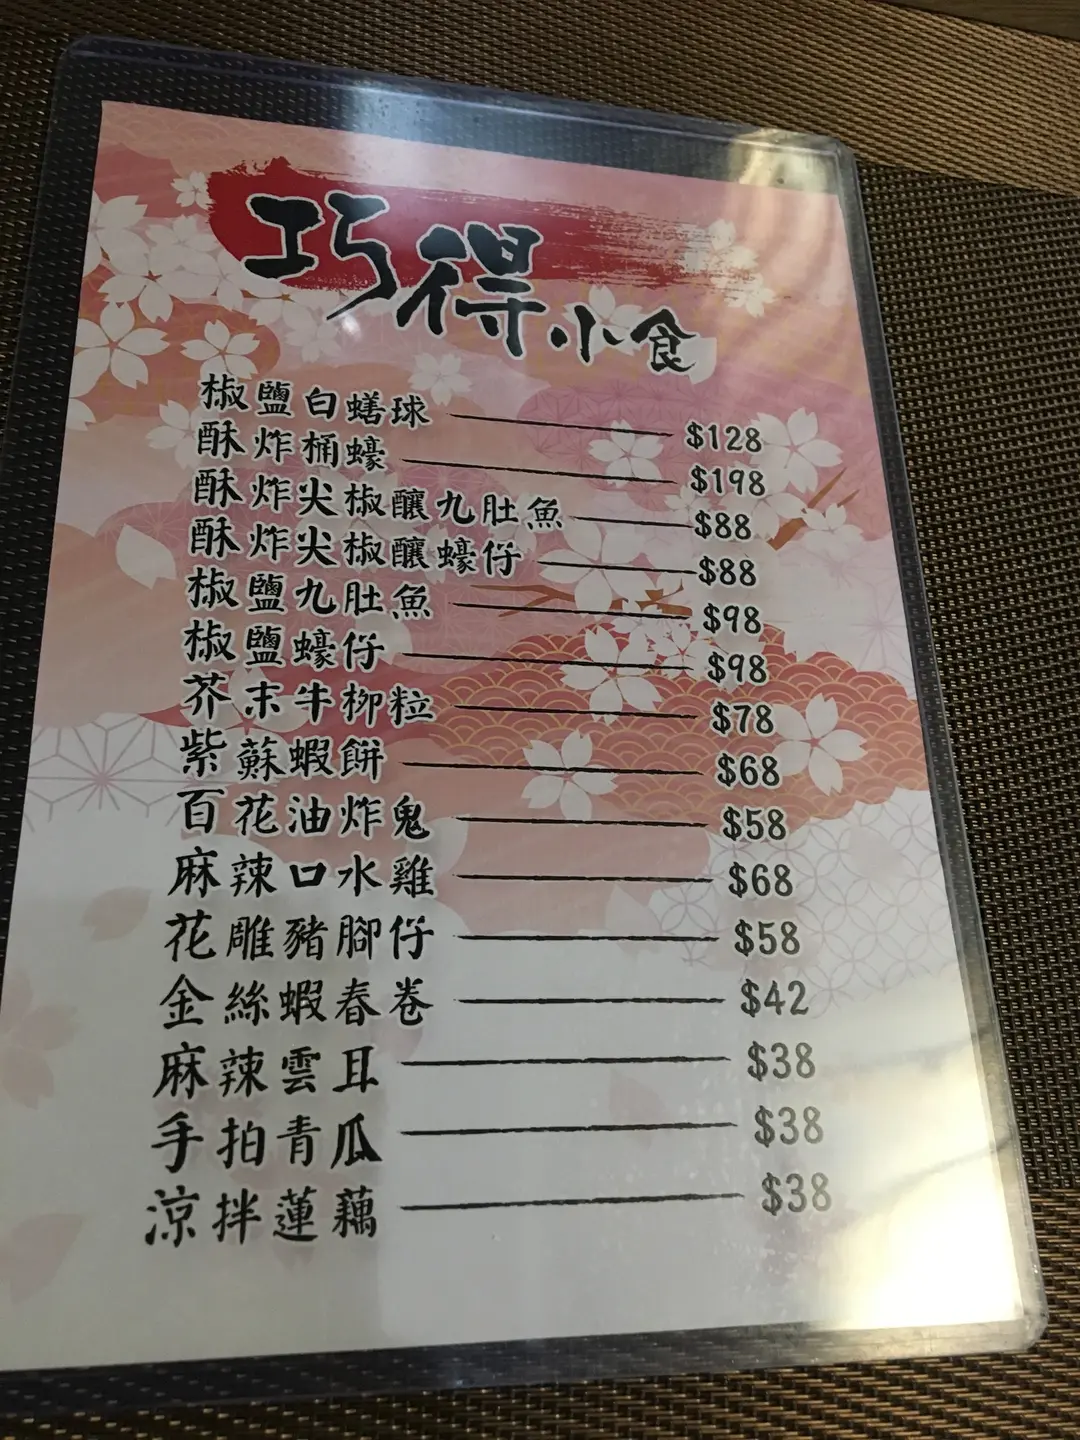 巧得小食
椒鹽白蟮球 $128
酥炸桶蠔 $198
酥炸尖椒釀九肚魚 $88
酥炸尖椒釀蠔仔 $88
椒鹽九肚魚 $98
椒鹽蠔仔 $98
芥末牛柳粒 $78
紫蘇蝦餅 $68
百花油炸鬼 $58
麻辣口水雞 $68
花雕豬腳仔 $58
金絲蝦春卷 $42
麻辣雲耳 $38
手拍青瓜 $38
涼拌蓮藕 $38